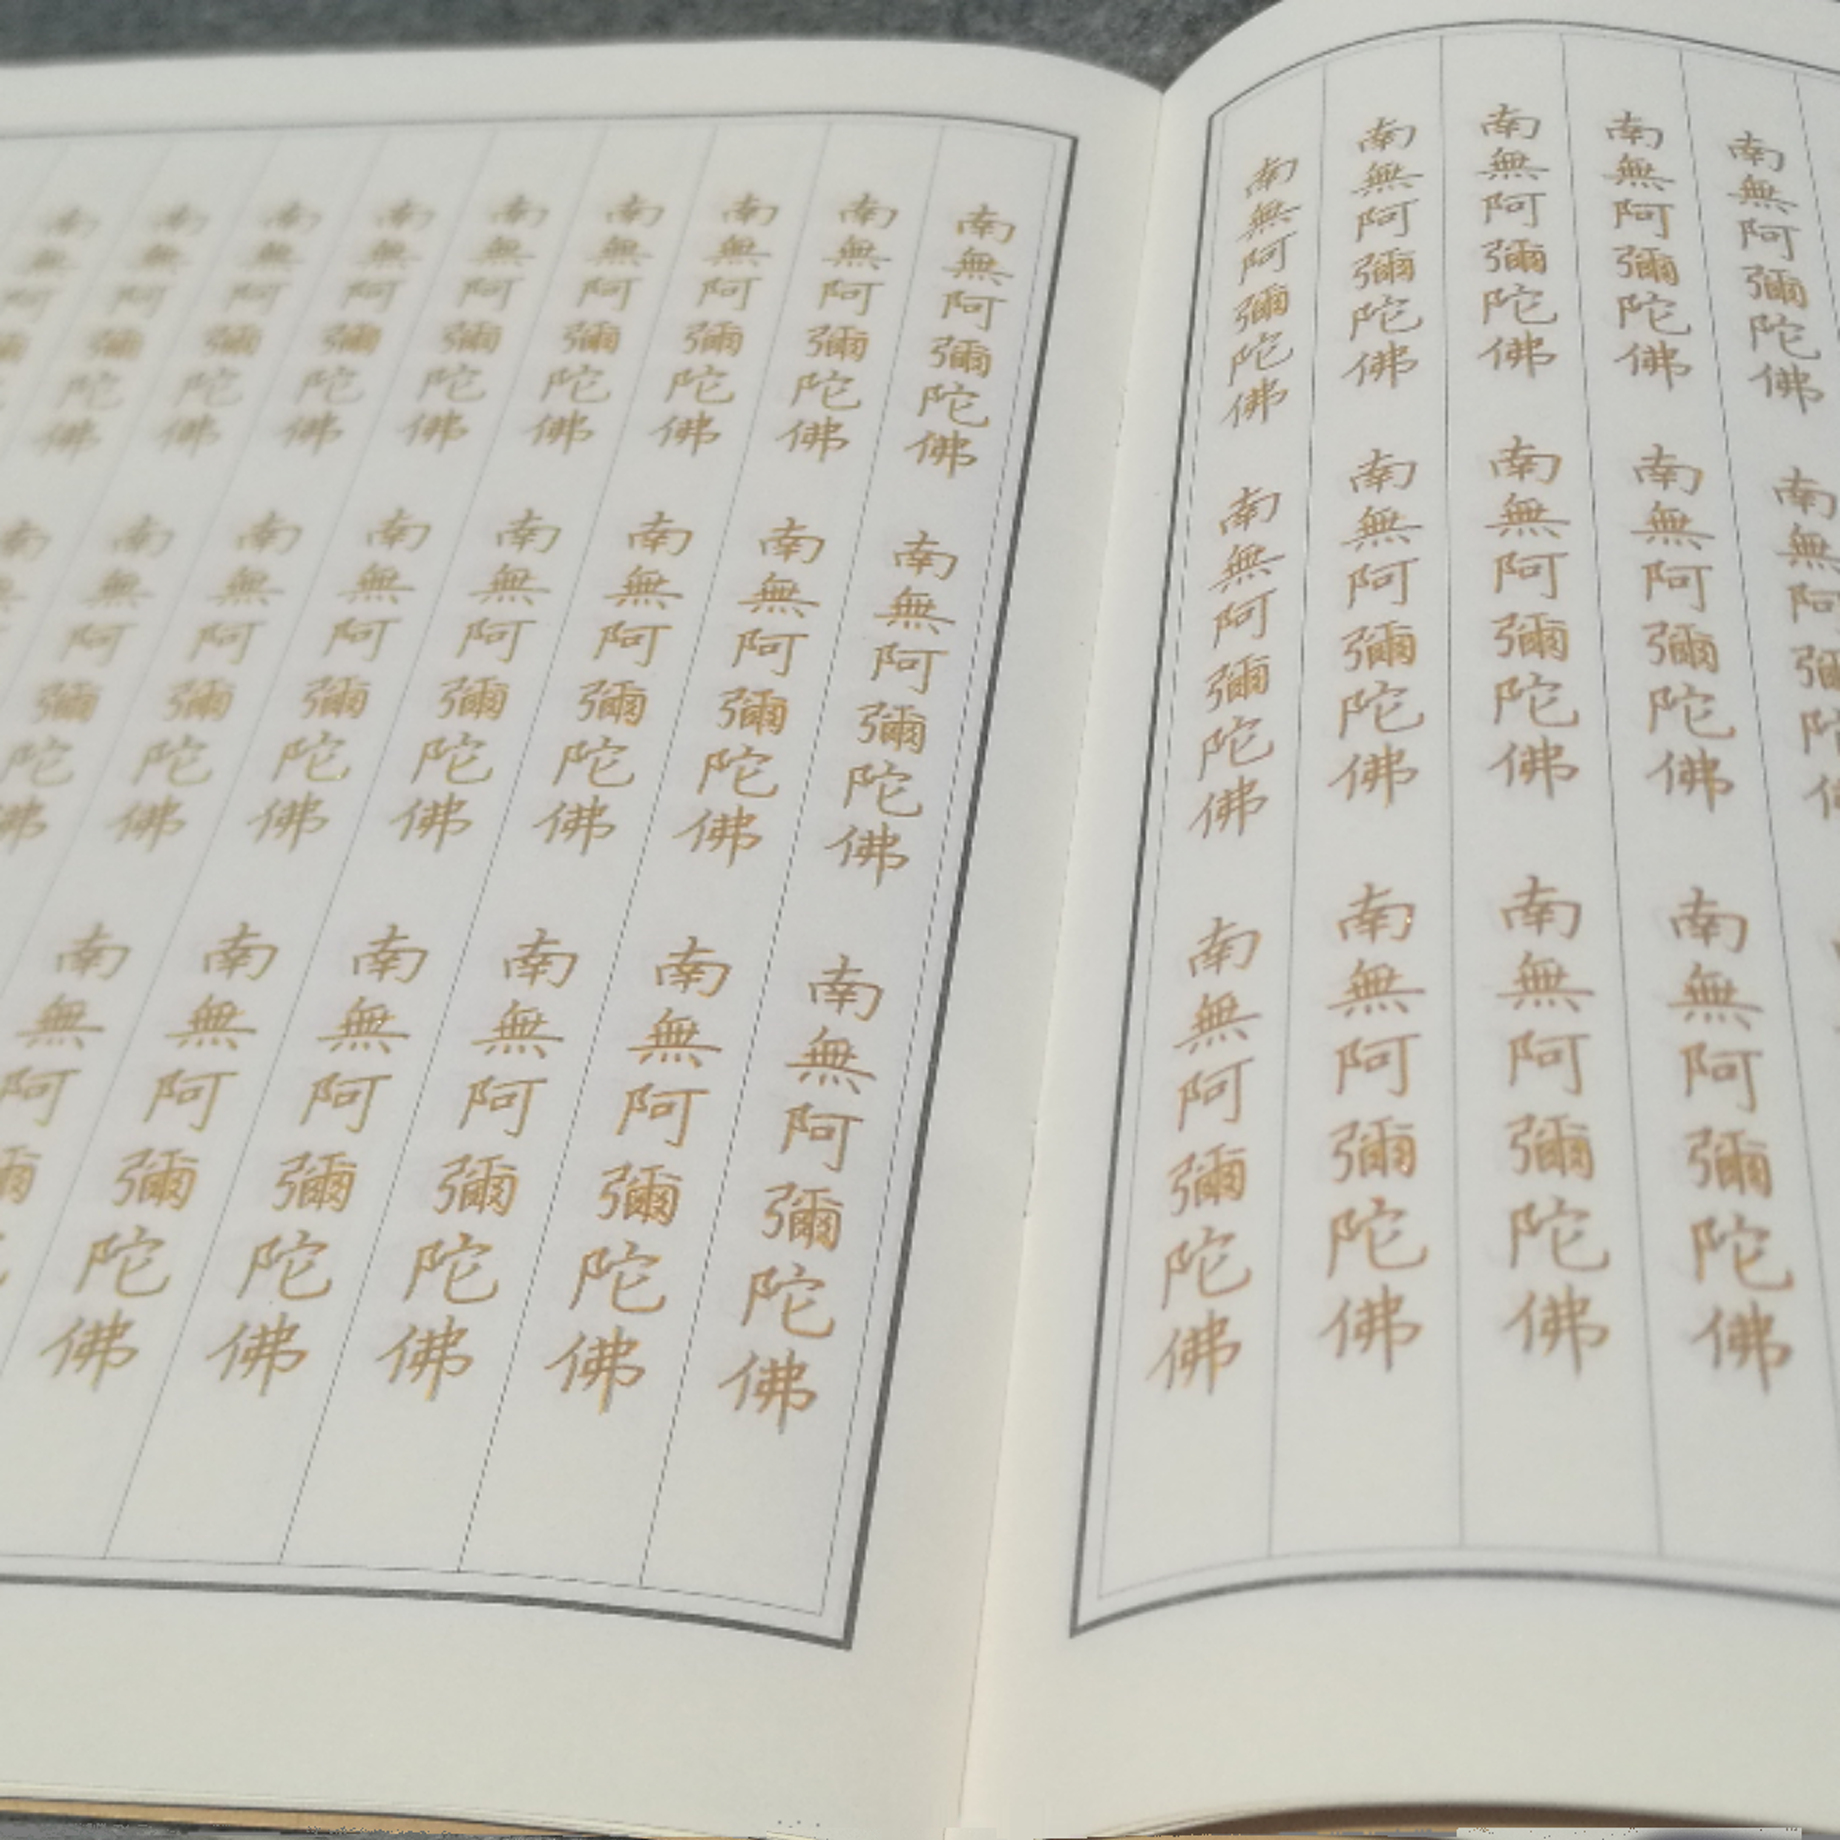 南無阿彌陀佛 南無阿彌陀佛
南無阿彌陀佛 南無阿彌陀佛 南無阿彌陀佛
南無阿彌陀佛 南無阿彌陀佛 南無阿彌陀佛
南無阿彌陀佛 南無阿彌陀佛 南無阿彌陀佛
南無阿彌陀佛 南無阿彌陀佛 南無阿彌陀佛
南無阿彌陀佛 南無阿彌陀佛 南無阿彌陀佛
南無阿彌陀佛 南無阿彌陀佛 南無阿彌陀佛
南無阿彌陀佛 南無阿彌陀佛 南無阿彌陀佛
南無阿彌陀佛 南無阿彌陀佛 南無阿彌陀佛
南無阿彌陀佛 南無阿彌陀佛 南無阿彌陀佛
南無阿彌陀佛 南無阿彌陀佛 南無阿彌
南無阿彌陀佛 南無阿彌陀佛
南無阿彌陀佛 南無
南無阿彌